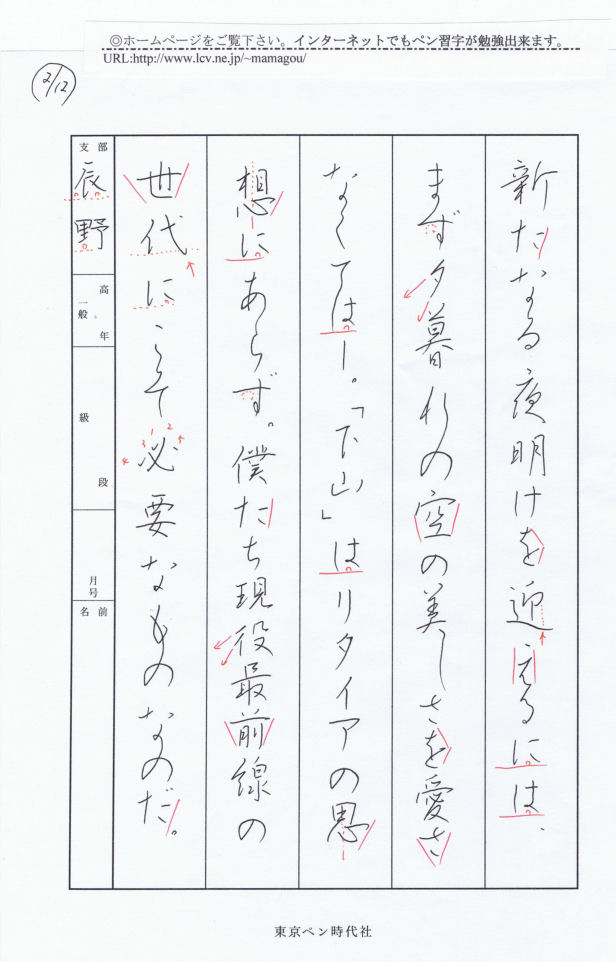 ◎ホームページをご覧下さい。インターネットでもペン習字が勉強出来ます。
URL:http://www.lcv.ne.jp/~mamagou/
2/12
新たなる夜明けを迎えるには、
まず夕暮れの空の美しさを愛さ
なくてはー。「下山」はリタイアの思
想にあらず。僕たち現役最前線の
世代にこそ必要なものなのだ。
支部
辰野
高年
一般
級
段
月号
名前
1
2
3
4
5
東京ペン時代社